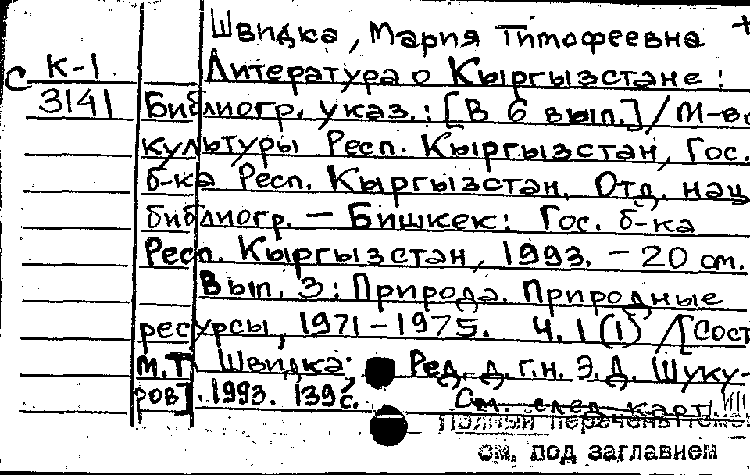 Швидка, Мария Тимофеевна +
С К-1 Литература о Кыргызстане:
3141 Библиогр. указ.: [В 6 вып.] / М-во
культуры Респ. Кыргызстан, Гос.
б-ка Респ. Кыргызстан. Отд. нац
библиогр. — Бишкек: Гос. б-ка
Респ. Кыргызстан, 1993. — 20 см.
Вып. 3: Природа. Природные
ресурсы, 1971-1975. Ч. 1 (1) / [Сост
М.Т. Швидка; Ред. д.г.н. Э.Д. Шуку-
ров]. 1993. 139 с. См. след. карт.
Полный перечень
см. под заглавием